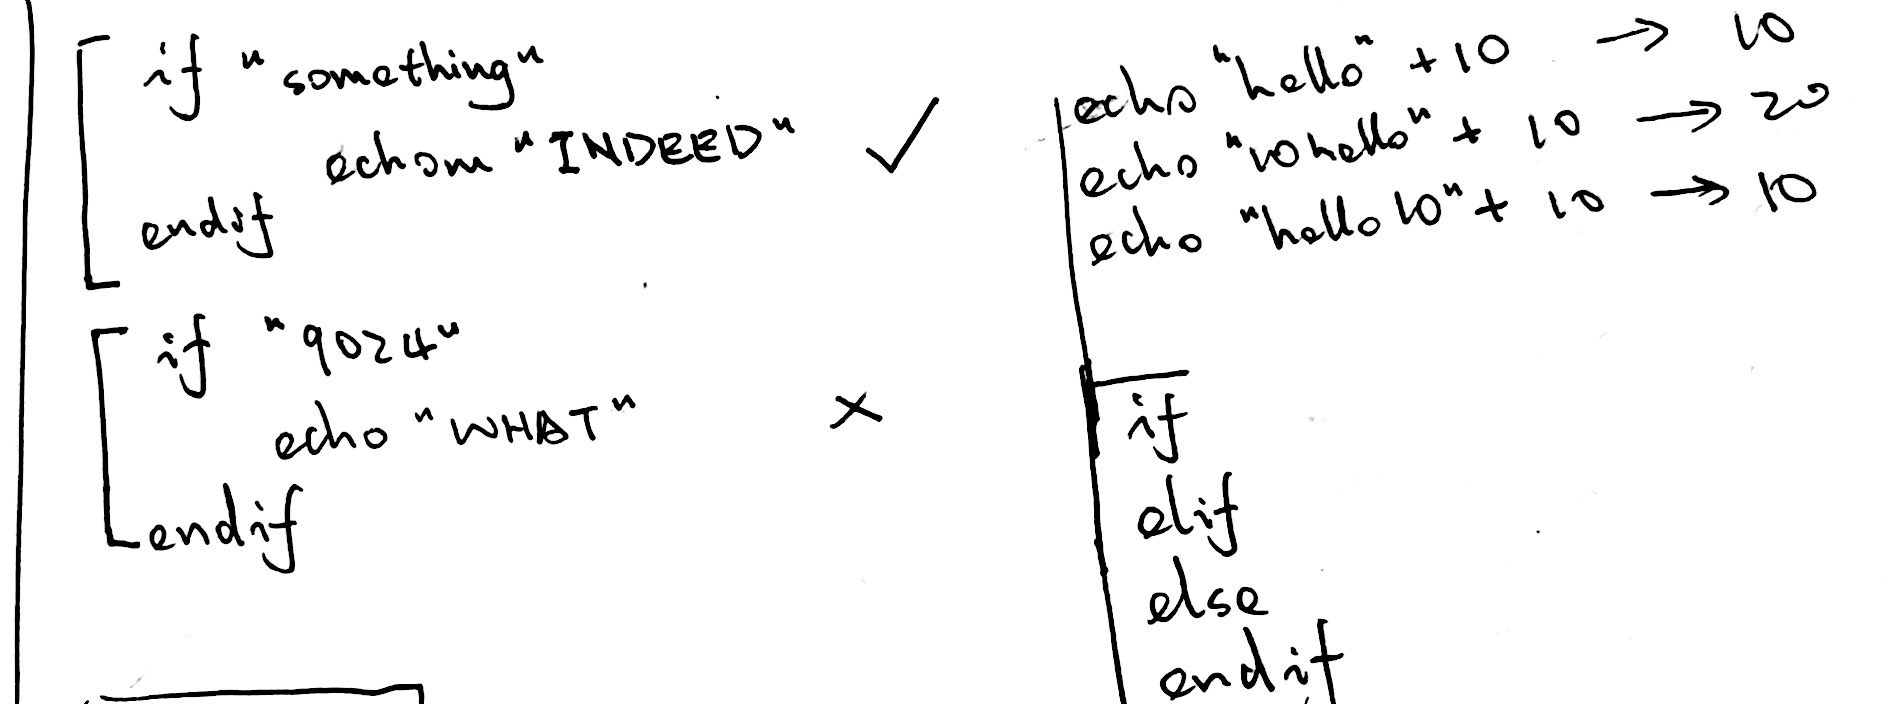 if "something"
echom "INDEED" ✓
endif
if "9024"
echo "WHAT" ×
endif
echo "hello" + 10 → 10
echo "10hello" + 10 → 20
echo "hello 10" + 10 → 10
if
elif
else
endif